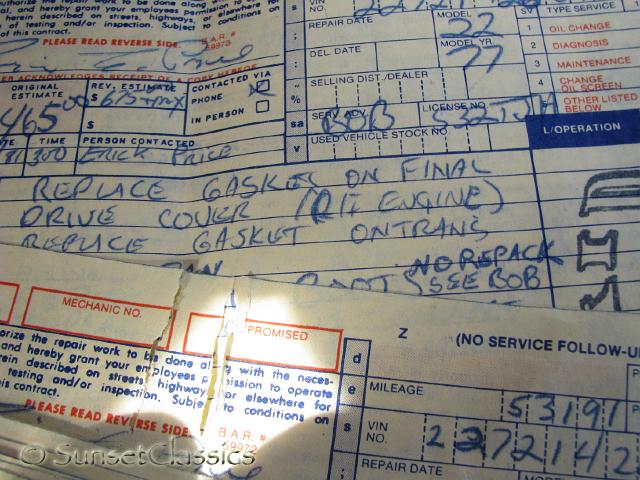 authorize the repair work to be done along
and hereby grant your employees
herein described on streets, highways, or elsewhere for
of testing and/or inspection. Subject to conditions on
of this contract.
PLEASE READ REVERSE SIDE.
B.A.R. #
59973
ER ACKNOWLEDGES RECEIPT OF A COPY HEREOF
ORIGINAL
ESTIMATE
465 00
REV. ESTIMATE
$ 675+tax
$
CONTACTED VIA
PHONE
IN PERSON
TIME
300
PERSON CONTACTED
ERICK PRICE
VIN
NO.
REPAIR DATE
MODEL
22
DEL DATE
MODEL YR.
77
SELLING DIST./DEALER
SERV. ADV.
BOB
LICENSE NO.
USED VEHICLE STOCK NO.
SV TYPE SERVICE
1 OIL CHANGE
2 DIAGNOSIS
3 MAINTENANCE
4 CHANGE
OIL SCREEN
OTHER LISTED
BELOW
L/OPERATION
REPLACE GASKET ON FINAL
DRIVE COVER (R/I ENGINE)
REPLACE GASKET ON TRANS
PAN
NO REPACK
BOOTS SEE BOB
MECHANIC NO.
PROMISED
Z
(NO SERVICE FOLLOW-U
orize the repair work to be done along with the neces-
and hereby grant your employees permission to operate
rein described on streets, highways or elsewhere for
testing and/or inspection. Subject to conditions on
this contract.
PLEASE READ REVERSE SIDE.
B.A.R. #
59972
MILEAGE
53191
VIN
NO.
2272142
REPAIR DATE
© SunsetClassics